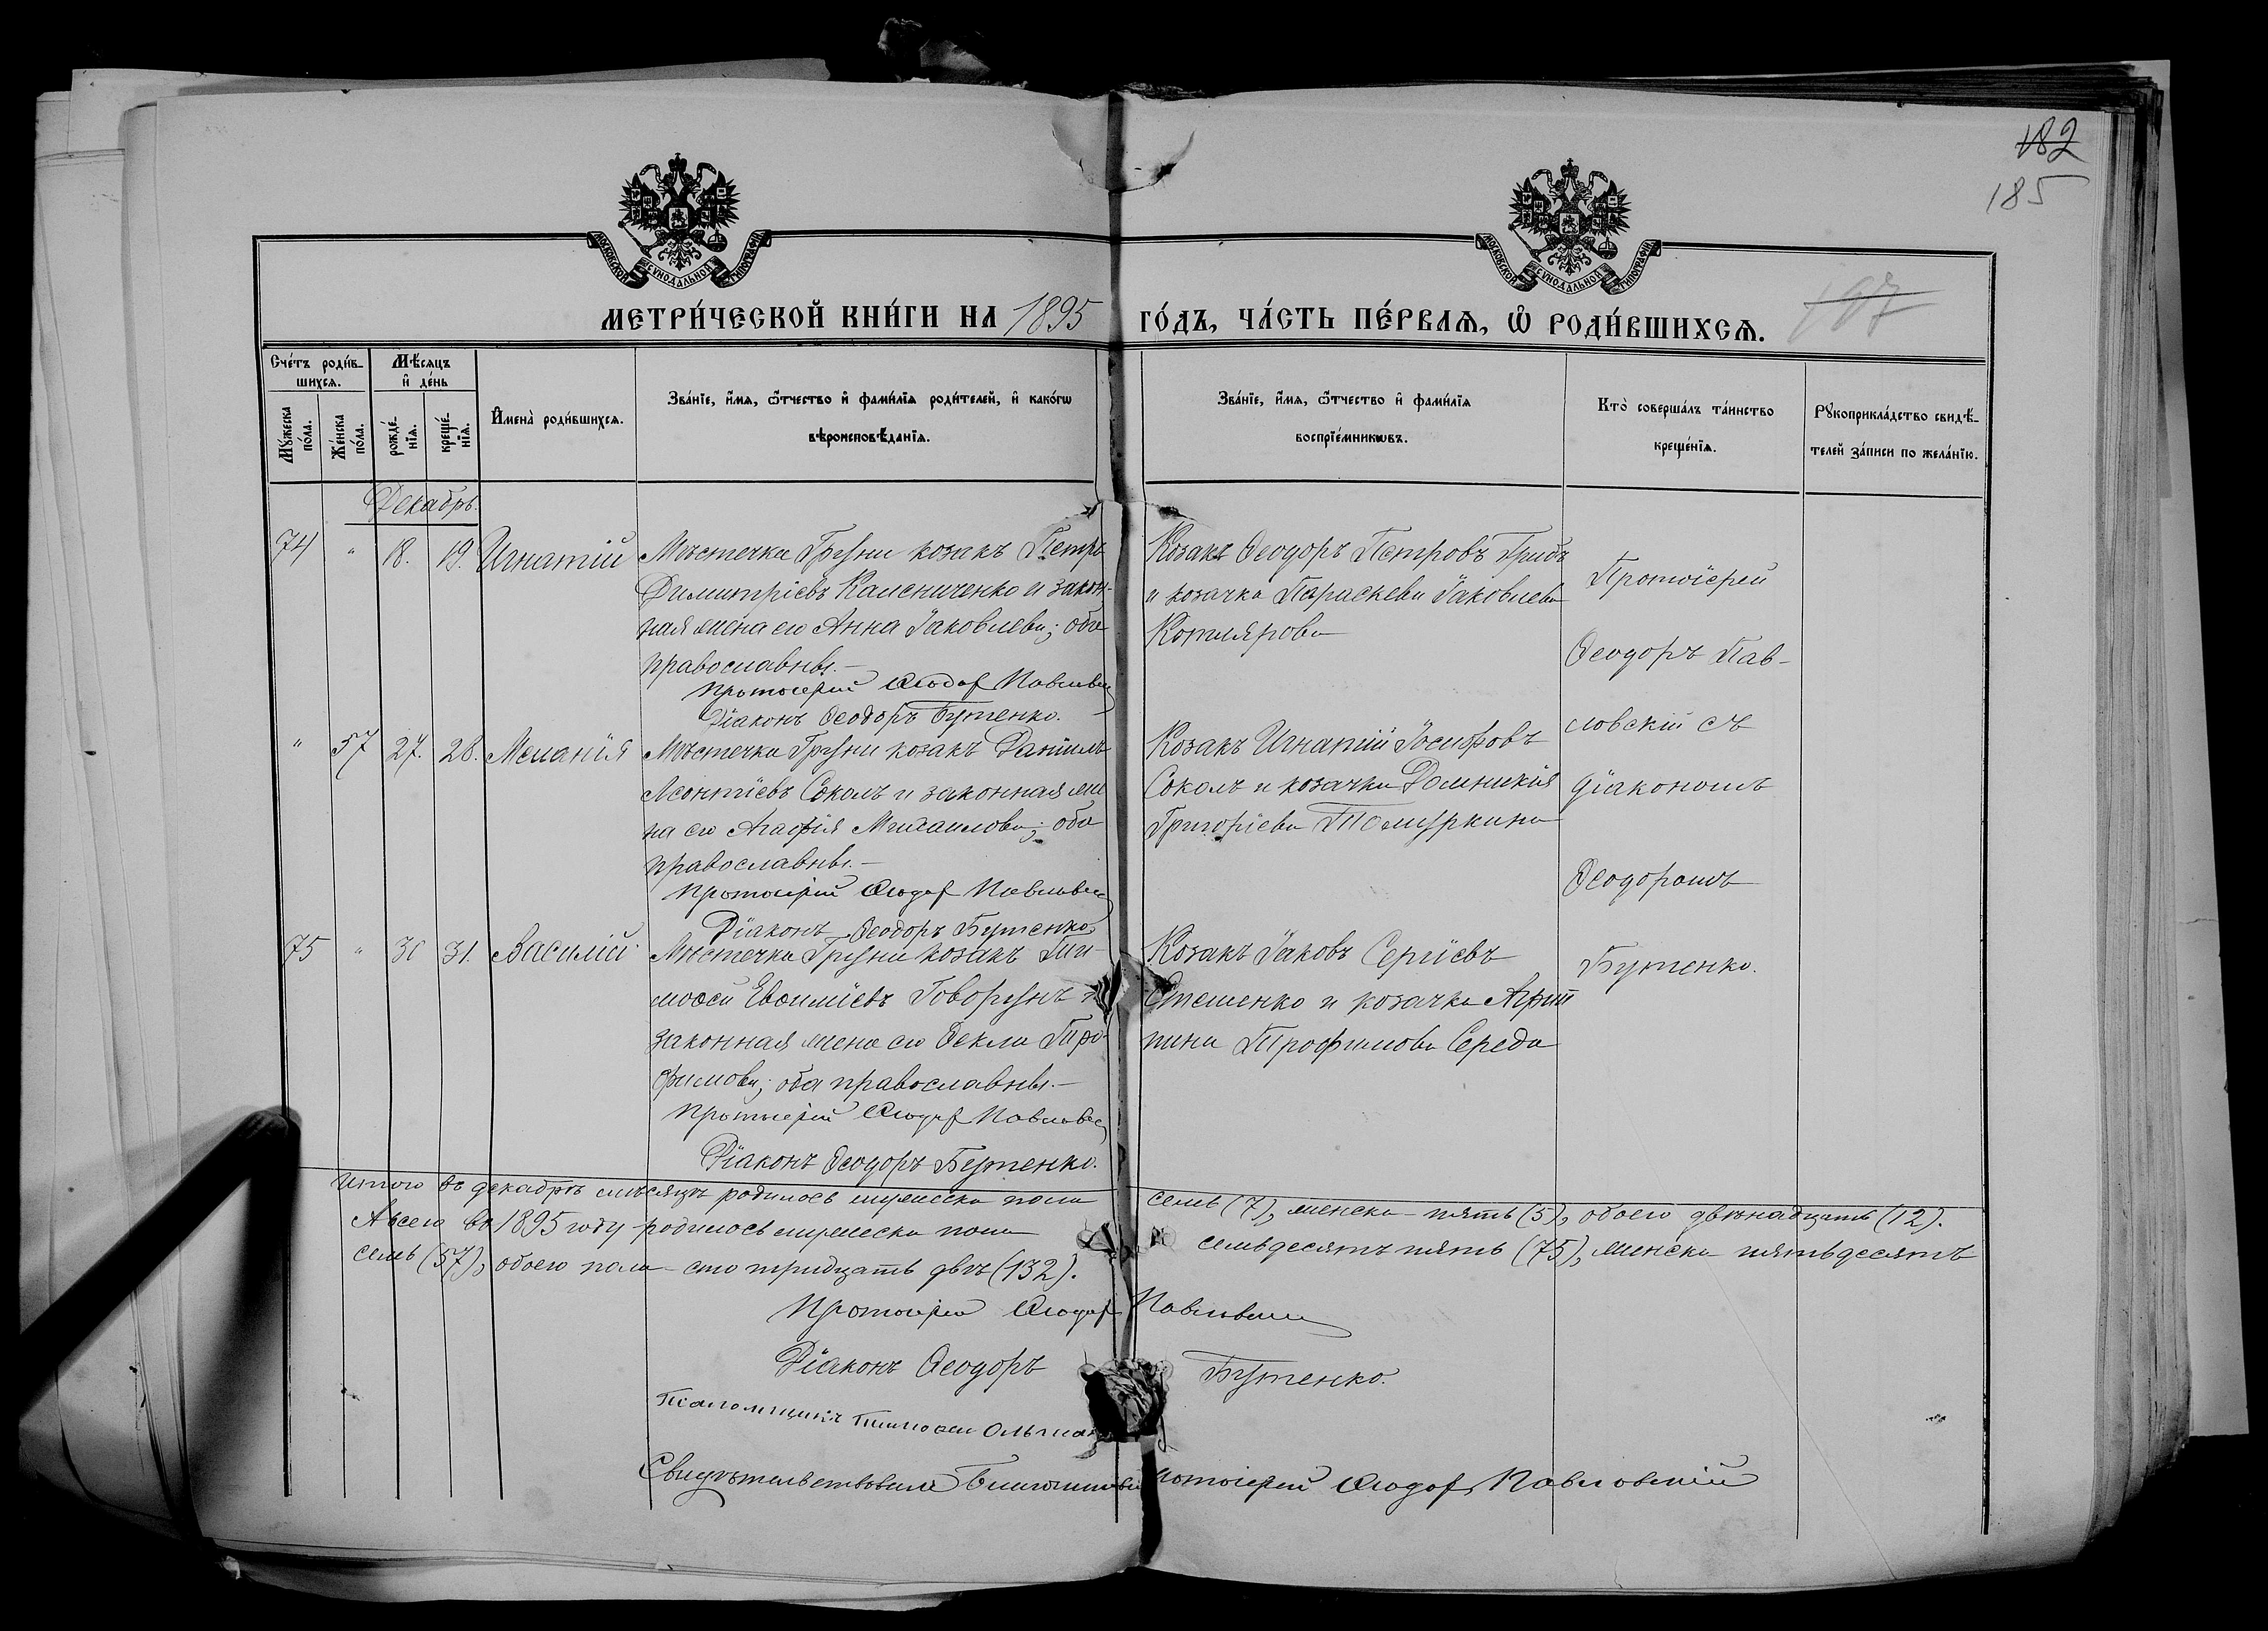 182
185
МОСКОВСКОЙ СѴНОДАЛЬНОЙ ТИПОГРАФІИ
МОСКОВСКОЙ СѴНОДАЛЬНОЙ ТИПОГРАФІИ
МЕТРИ́ЧЕСКОЙ КНИ́ГИ НА 1895 ГО́ДЪ, ЧА́СТЬ ПЕ́РВАѦ, Ѽ РОДИ́ВШИХСѦ.
Сче́тъ роди́в-
шихсѧ.
Мꙋ́жеска по́ла.
Же́нска по́ла.
Мѣ́сѧцъ
и҆ де́нь
рожде́-
нїѧ.
креще́-
нїѧ.
И҆мена̀ роди́вшихсѧ.
Зва́нїе, и҆́мѧ, ѻ҆́тчество и҆ фами́лїѧ роди́телей, и҆ како́гѡ
вѣроисповѣ́данїѧ.
Зва́нїе, и҆́мѧ, ѻ҆́тчество и҆ фами́лїѧ
воспрїе́мникѡвъ.
Кто̀ соверша́лъ та́инство
креще́нїѧ.
Рꙋкоприкла́дство свидѣ́-
телей за́писи по жела́нїю.
Декабрь.
74 " 18. 19. Игнатій
Мѣстечка Грѵни козакъ Петръ
Димитріевъ Калениченко и закон-
ная жена его Анна Іаковлева; оба
православны.–
Протоіерей Ѳеодоръ Павловскій
Діаконъ Ѳеодоръ Бутенко.
Козакъ Ѳеодоръ Петровъ Гридь
и козачка Параскева Іаковлева
Котлярова
" 57 27. 28. Меланія
Мѣстечка Грѵни козакъ Даніилъ
Леонтіевъ Соколъ и законная же
на его Агафія Михаилова; оба
православны.–
Протоіерей Ѳеодоръ Павловскій
Діаконъ Ѳеодоръ Бутенко.
Козакъ Игнатій Іосифовъ
Соколъ и козачка Домникія
Григоріева
75 " 30 31. Василій
Мѣстечка Грѵни козакъ Ти-
моѳей Евѳиміевъ Говорунъ и
законная жена его Ѳекла Тро-
фимова; оба православны.–
Протоіерей Ѳеодоръ Павловскій
Діаконъ Ѳеодоръ Бутенко.
Козакъ Іаковъ Сергіевъ
Стешенко и козачка Агрип
пина Трофимова Середа
Протоіерей
Ѳеодоръ Пав-
ловскій съ
діакономъ
Ѳеодоромъ
Бутенко.
Итого въ декабрѣ мѣсяцѣ родилось мужеска пола семь (7), женска пять (5), обоего двѣнадцать (12).
А всего въ 1895 году родилось мужеска пола семьдесятъ пять (75), женска пятьдесятъ
семь (57), обоего пола сто тридцать двѣ (132).
Протоіерей Ѳеодоръ Павловскій
Діаконъ Ѳеодоръ Бутенко.
Псаломщикъ Тимоѳей
Свидѣтельствовалъ Благочинный Протоіерей Ѳеодоръ Павловскій